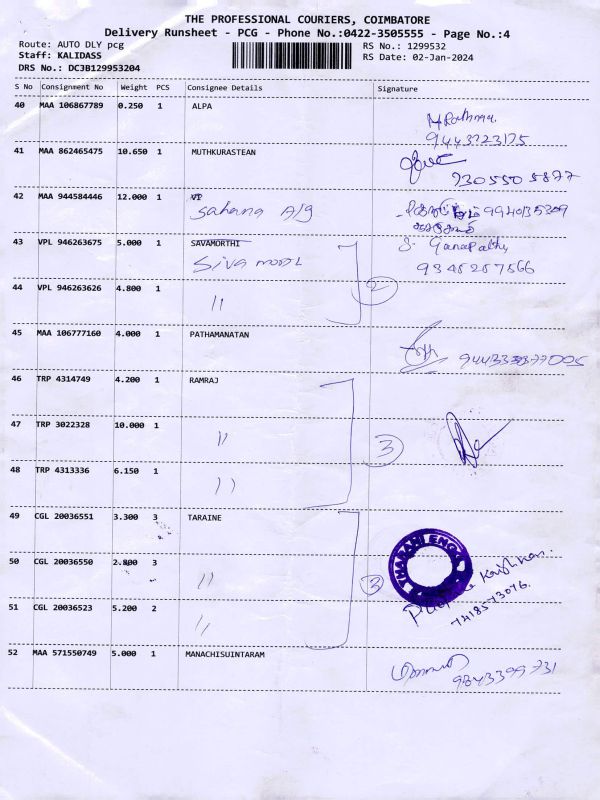 THE PROFESSIONAL COURIERS, COIMBATORE
Delivery Runsheet - PCG - Phone No.:0422-3505555 - Page No.:4
Route: AUTO DLY pcg RS No.: 1299532
Staff: KALIDASS RS Date: 02-Jan-2024
DRS No.: DCJB129953204
S No Consignment No Weight PCS Consignee Details Signature
40 MAA 106867789 0.250 1 ALPA
9443723175
41 MAA 862465475 10.650 1 MUTHKURASTEAN
7305505877
42 MAA 944584446 12.000 1 VP
Sahana A/g 9940135309
43 VPL 946263675 5.000 1 SAVAMORTHI S. Ganapathy
Siva model 9345257566
2
44 VPL 946263626 4.800 1 "
45 MAA 106777160 4.000 1 PATHAMANATAN
46 TRP 4314749 4.200 1 RAMRAJ
47 TRP 3022328 10.000 1 "
3
48 TRP 4313336 6.150 1 "
49 CGL 20036551 3.300 3 TARAINE
THARANI ENGG
50 CGL 20036550 2.800 3 "
3
7418573076.
51 CGL 20036523 5.200 2 "
52 MAA 571550749 5.000 1 MANACHISUINTARAM
9843399731